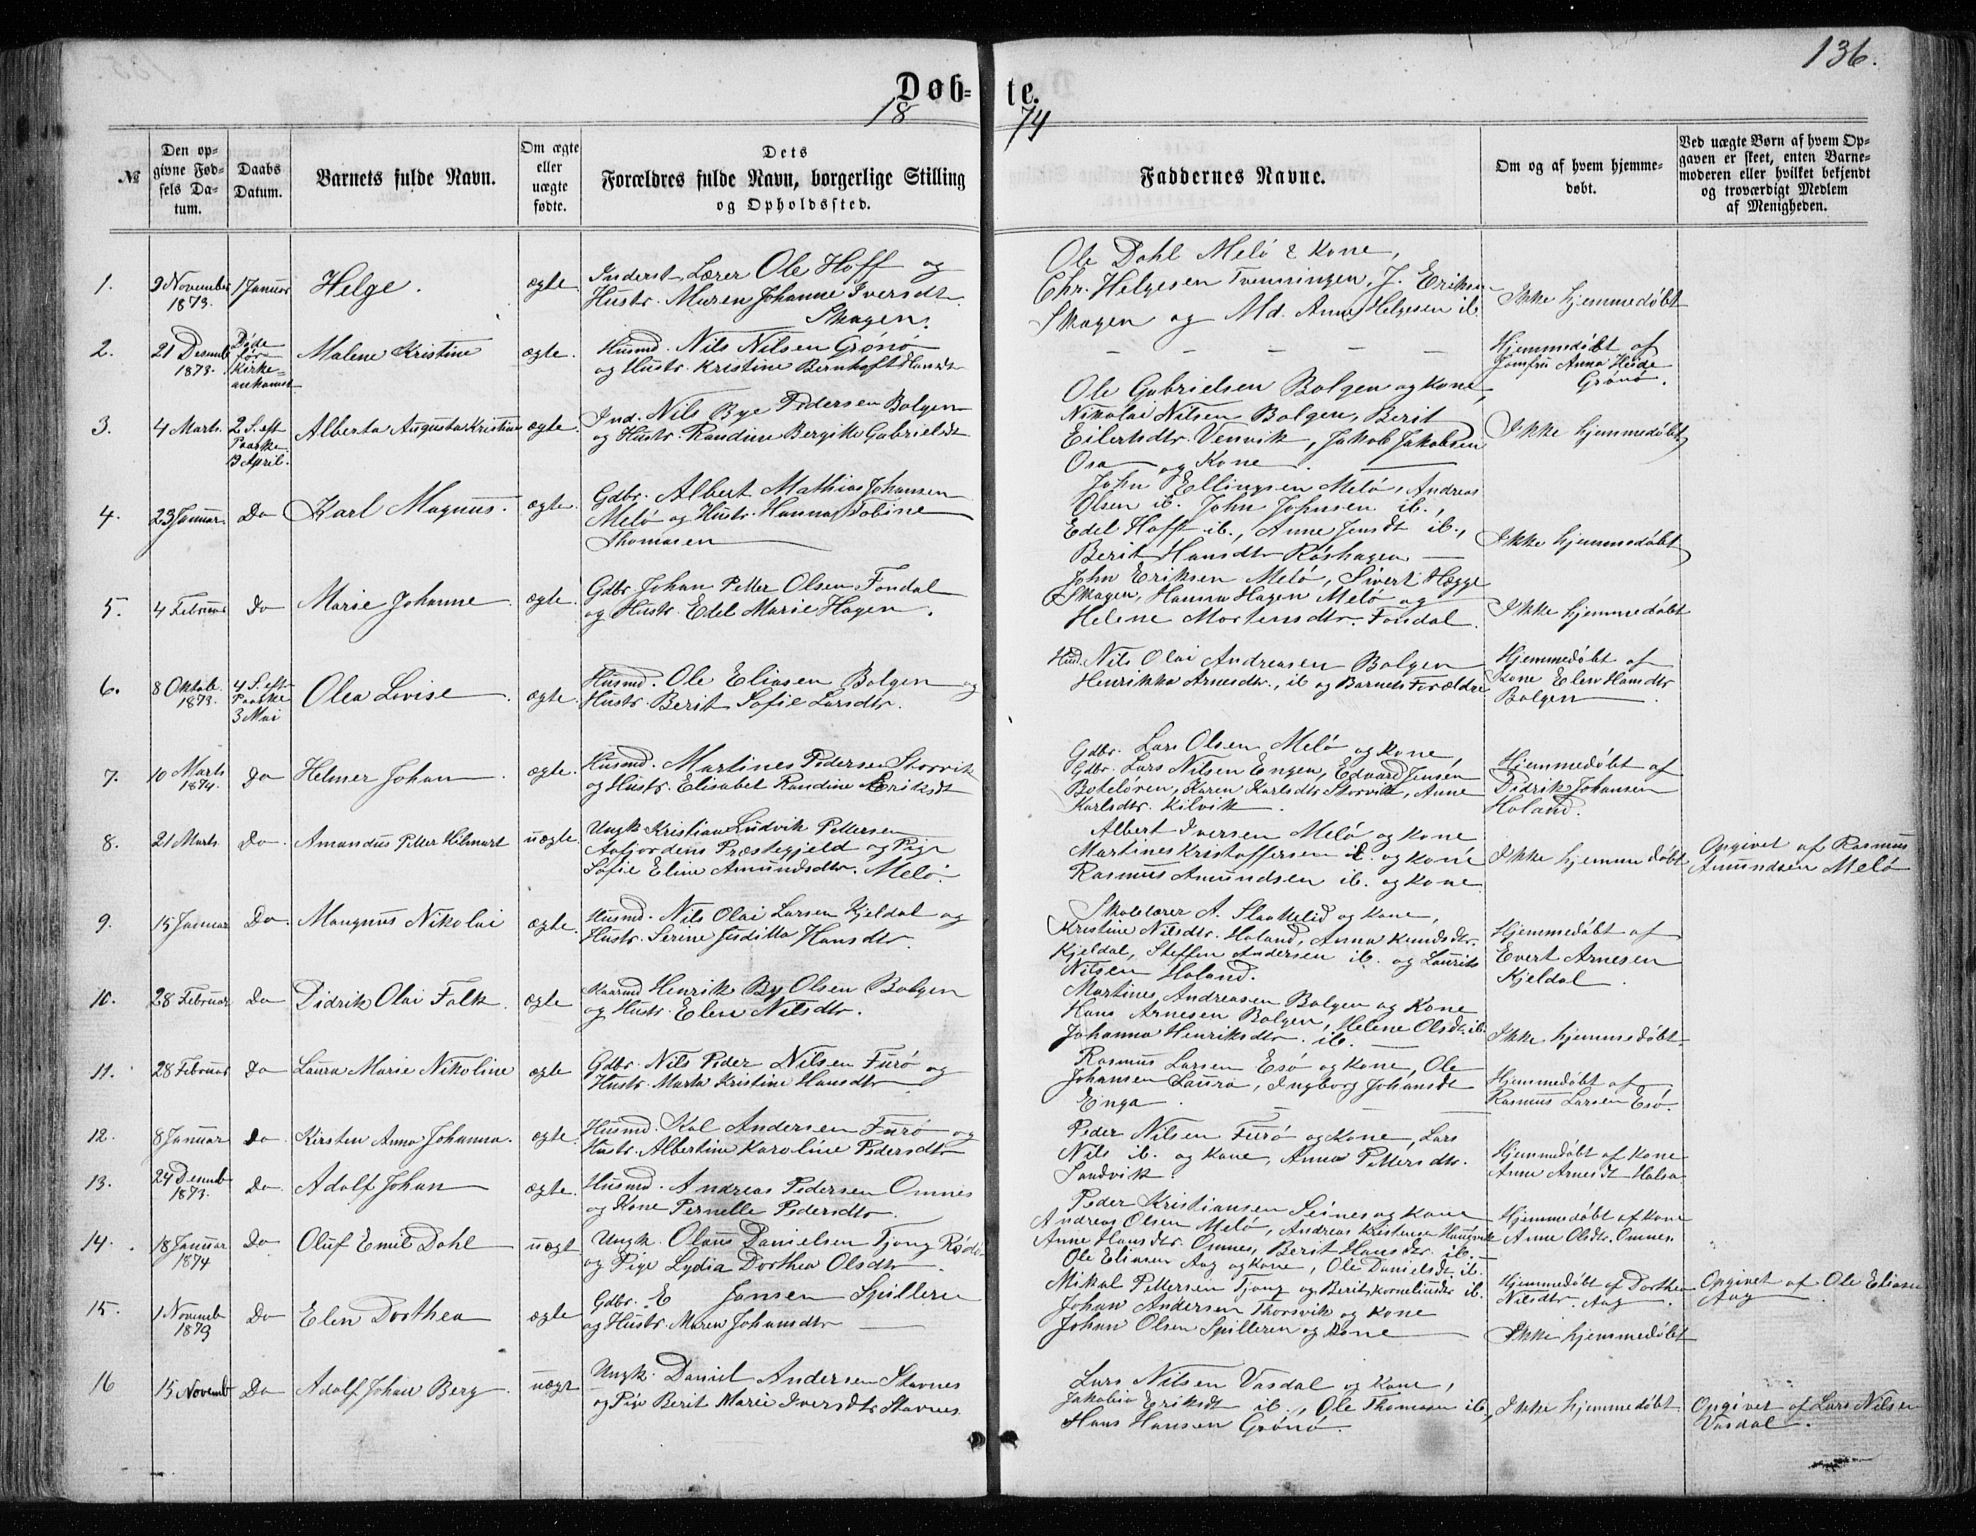 136.
Døb-te.
1874
№
Den opgivne Fødsels Datum.
Daabs Datum.
Barnets fulde Navn.
Om ægte eller uægte fødte.
Dets Forældres fulde Navn, borgerlige Stilling og Opholdssted.
Faddernes Navne.
Om og af hvem hjemmedøbt.
Ved uægte Børn af hvem Opgaven er skeet, enten Barnemoderen eller hvilket bekjendt og troværdigt Medlem af Menigheden.
1. 9 November 1873. 1 Januar Helge. ægte.
Inderst Lærer Ole Hoff og
Hustr. Maren Johanne Iversdt.
Skagen.
Ole Dahl Melö & Kone,
Chr. Helgesen Tvenningen, J. Eriksen
Skagen og Md. Anne Helgesen ib.
Ikke hjemmedøbt
2. 21 Desemb 1873. Døde før Kirkeankomst Malene Kristine ægte.
Husmd. Nils Nilsen Grønö
og Hustr. Kristine Bernhoft Hansdt
— — — — —
Hjemmedøbt af
Jomfru Anna Heide
Grønö.
3. 4 Marts. 2 S. eft Paaske 19 April. Alberta Augusta Kristine ægte.
Ind. Nils Bye Pedersen Bolgen
og Hustr. Randine Bergite Gabrielsdt
Ole Gabrielsen Bolgen og Kone,
Nikolai Nilsen Bolgen, Berit
Eilertsdtr. Venvik, Jakob Jakobsen
Osa og Kone.
Ikke hjemmedøbt
4. 23 Januar Do Karl Magnus. ægte.
Gdbr. Albert Mathias Johansen
Melö og Hustr. Hanna Tobine
Thomasen
John Ellingsen Melö, Andreas
Olsen ib. John Johnsen ib.,
Edel Hoff ib., Anne Jensdt ib.,
Berit Hansdtr Röshagen
Ikke hjemmedøbt
5. 4 Februar Do Marie Johanne. ægte.
Gdbr Johan Petter Olsen Fondal
og Hustr. Edel Marie Hagen.
John Eriksen Melö, Sivert Hegge
Skagen, Hanna Hagen Melö og
Helene Mortensdtr. Fondal.
Ikke hjemmedøbt
6. 8 Oktob. 1873. 4 S. eft Paaske 3 Mai Olea Lovise. ægte.
Husmd. Ole Eliasen Bolgen og
Hustr. Berit Sofie Larsdtr.
Husmd. Nils Olai Andreasen Bolgen
Henrikka Arnesdtr., ib og Barnets Forældre
Hjemmedøbt af
Kone Elen Hansdtr
Bolgen
7. 10 Marts 1874. Do Helmer Johan. ægte.
Husmd. Martines Pedersen Storvik
og Hustr. Elisabet Randine Eriksdt
Gdbr. Lars Olsen Melö og Kone,
Gdbr. Lars Nilsen Engen, Edvard Jensen
Boteløren, Karen Karlsdtr Storvik, Anne
Karlsdtr. Kilvik.
Hjemmedøbt af
Didrik Johansen
Holand.
8. 21 Marts Do. Amandus Petter Hilmart uægte
Ungk Kristian Ludvik Pettersen
Aafjordens Præstegjeld og Pige
Sofie Eline Amundsdtr. Melö.
Albert Iversen Melö og Kone
Martines Kristoffersen ib. og Kone
Rasmus Amundsen ib. og Kone
Ikke hjemmedøbt
Opgivet af Rasmus
Amundsen Melö
9. 15 Januar Do. Maugnus Nikolai ægte.
Husmd. Nils Olai Larsen Kjeldal og
Hustr. Serine Juditta Hansdtr.
Skolelærer A. Slaattelid og Kone,
Kristine Nilsdtr. Holand, Anna Knudsdtr.
Kjeldal, Steffen Andersen ib. og Laurits
Nilsen Holand.
Hjemmedøbt af
Evert Arnesen
Kjeldal.
10. 28 Februar Do Didrik Olai Falk. ægte
Kaarmd Henrik By Olsen Bolgen
og Hustr. Elen Nilsdtr.
Martines Andreasen Bolgen og Kone
Hans Arnesen Bolgen, Helene Olsdt. ib.
Johanna Henriksdtr. ib.
Ikke hjemmedøbt.
11. 28 Februar Do Laura Marie Nikoline ægte
Gdbr. Nils Peder Nilsen Furö og
Hustr. Marta Kristine Hansdtr
Rasmus Larsen Esö og Kone, Ole
Johansen Laura, Ingborg Johansdt
Enga.
Hjemmedøbt af
Rasmus Larsen Esö.
12. 8 Januar do. Kirsten Anna Johanna. ægte.
Husmd. Kol Andersen Furö og
Hustr. Albertine Karoline Pedersdtr
Peder Nilsen Furö og Kone, Lars
Nils ib. og Kone, Anna Pettersdtr.
Sandvik.
Hjemmedøbt af Kone
Anne Arnesdt Halsa
13. 24 Desemb 1873. Do. Adolf Johan ægte.
Husmd. Andreas Pedersen Omnes
og Kone Pernelle Pedersdtr.
Peder Kristiansen Seines og Kone
Andreas Olsen Melö, Andreas Kristensen Haugvik
Anne Hansdtr. Omnes, Berit Hansdtr. ib.
Hjemmedøbt af Kone
Anne Olsdtr. Omnes
14. 18 Januar 1874 Do Oluf Emil Dahl uægt
Ungk. Olaus Danielsen Tjong Rødö
og Pige Lydia Dorthea Olsdtr.
Ole Eliasen Aag og Kone, Ole Danielsdt. ib.
Mikal Pettersen Tjong og Berit Korneliusdtr ib.
Hjemmedøbt af Dorthea
Nilsdtr. Aag
Opgivet af Ole Eliasen
Aag
15. 1 Novemb 1873 Do Elen Dorthea ægte
Gdbr. E Jansen Spilleren
og Hustr. Maren Johansdtr
Johan Andersen Thorsvik og Kone
Johan Olsen Spilleren og Kone
Ikke hjemmedøbt
16 15 Novemb Do Adolf Johan Berg. uægt
Ungk. Daniel Andersen Stavnes
og Pige Berit Marie Iversdtr Stavnes
Lars Nilsen Vasdal og Kone,
Jakobia Eriksdt ib., Ole Thomasen ib.,
Hans Hansen Grønö.
Ikke hjemmedøbt.
Opgivet af Lars Nilsen
Vasdal.